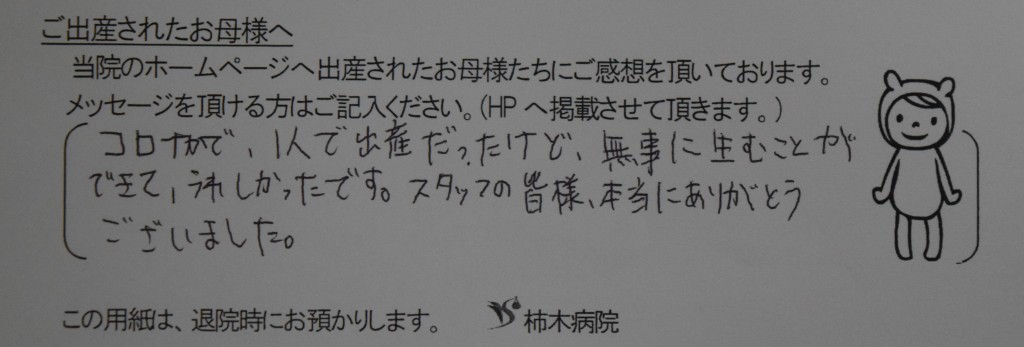 ご出産されたお母様へ
当院のホームページへ出産されたお母様たちにご感想を頂いております。
メッセージを頂ける方はご記入ください。(HPへ掲載させて頂きます。)
コロナかで、1人で出産だったけど、無事に生むことが
できて、うれしかったです。スタッフの皆様、本当にありがとう
ございました。
この用紙は、退院時にお預かりします。 柿木病院